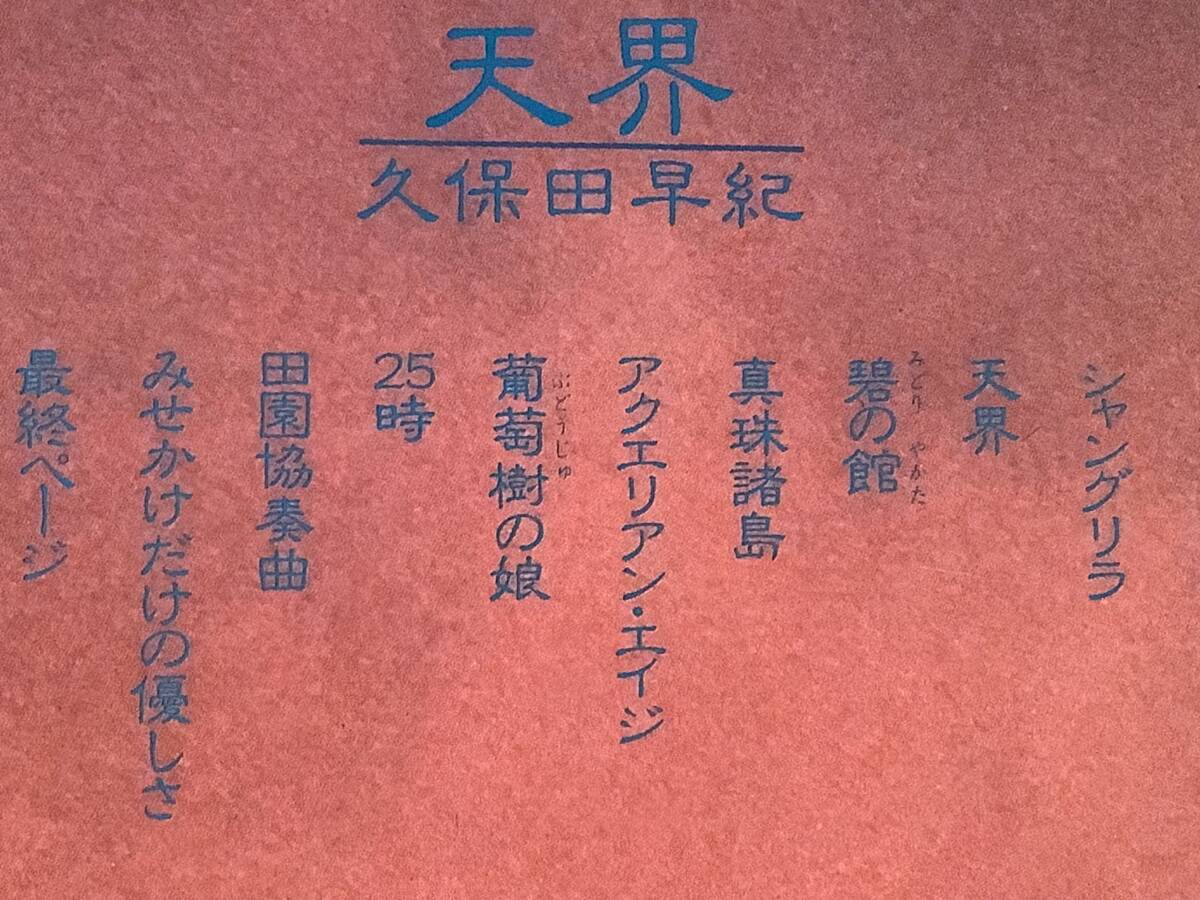 天界
久保田早紀
シャングリラ
天界
みどり やかた
碧の館
真珠諸島
アクエリアン・エイジ
ぶどうじゅ
葡萄樹の娘
25時
田園協奏曲
みせかけだけの優しさ
最終ページ